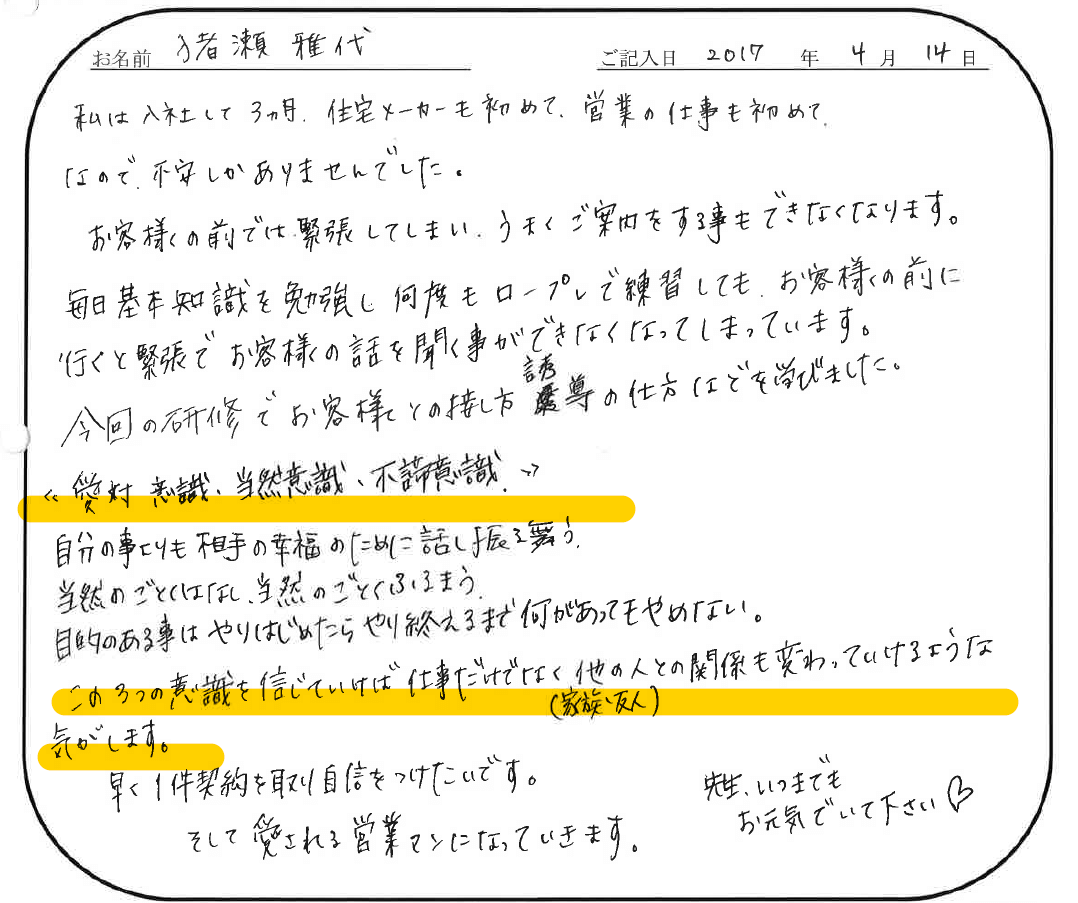 お名前 猪瀬 雅代 ご記入日 2017 年 4 月 14 日
私は入社して3ヵ月、住宅メーカーも初めて、営業の仕事も初めて
なので、不安しかありませんでした。
お客様の前では緊張してしまい、うまくご案内をする事もできなくなります。
毎日基本知識を勉強し何度もロープレで練習しても、お客様の前に
行くと緊張でお客様の話を聞く事ができなくなってしまっています。
今回の研修でお客様との接し方 誘導の仕方などを学びました。
《愛対意識、当然意識、不諦意識、》
自分の事よりも相手の幸福のために話し振る舞う、
当然のごとくはなし、当然のごとくふるまう、
目的のある事はやりはじめたらやり終えるまで何があってもやめない。
この3つの意識を信じていけば仕事だけでなく他の人との関係も変わっていけるような
(家族、友人)
気がします。
早く1件契約を取り自信をつけたいです。
そして愛される営業マンになっていきます。
先生、いつまでも
お元気でいて下さい♡